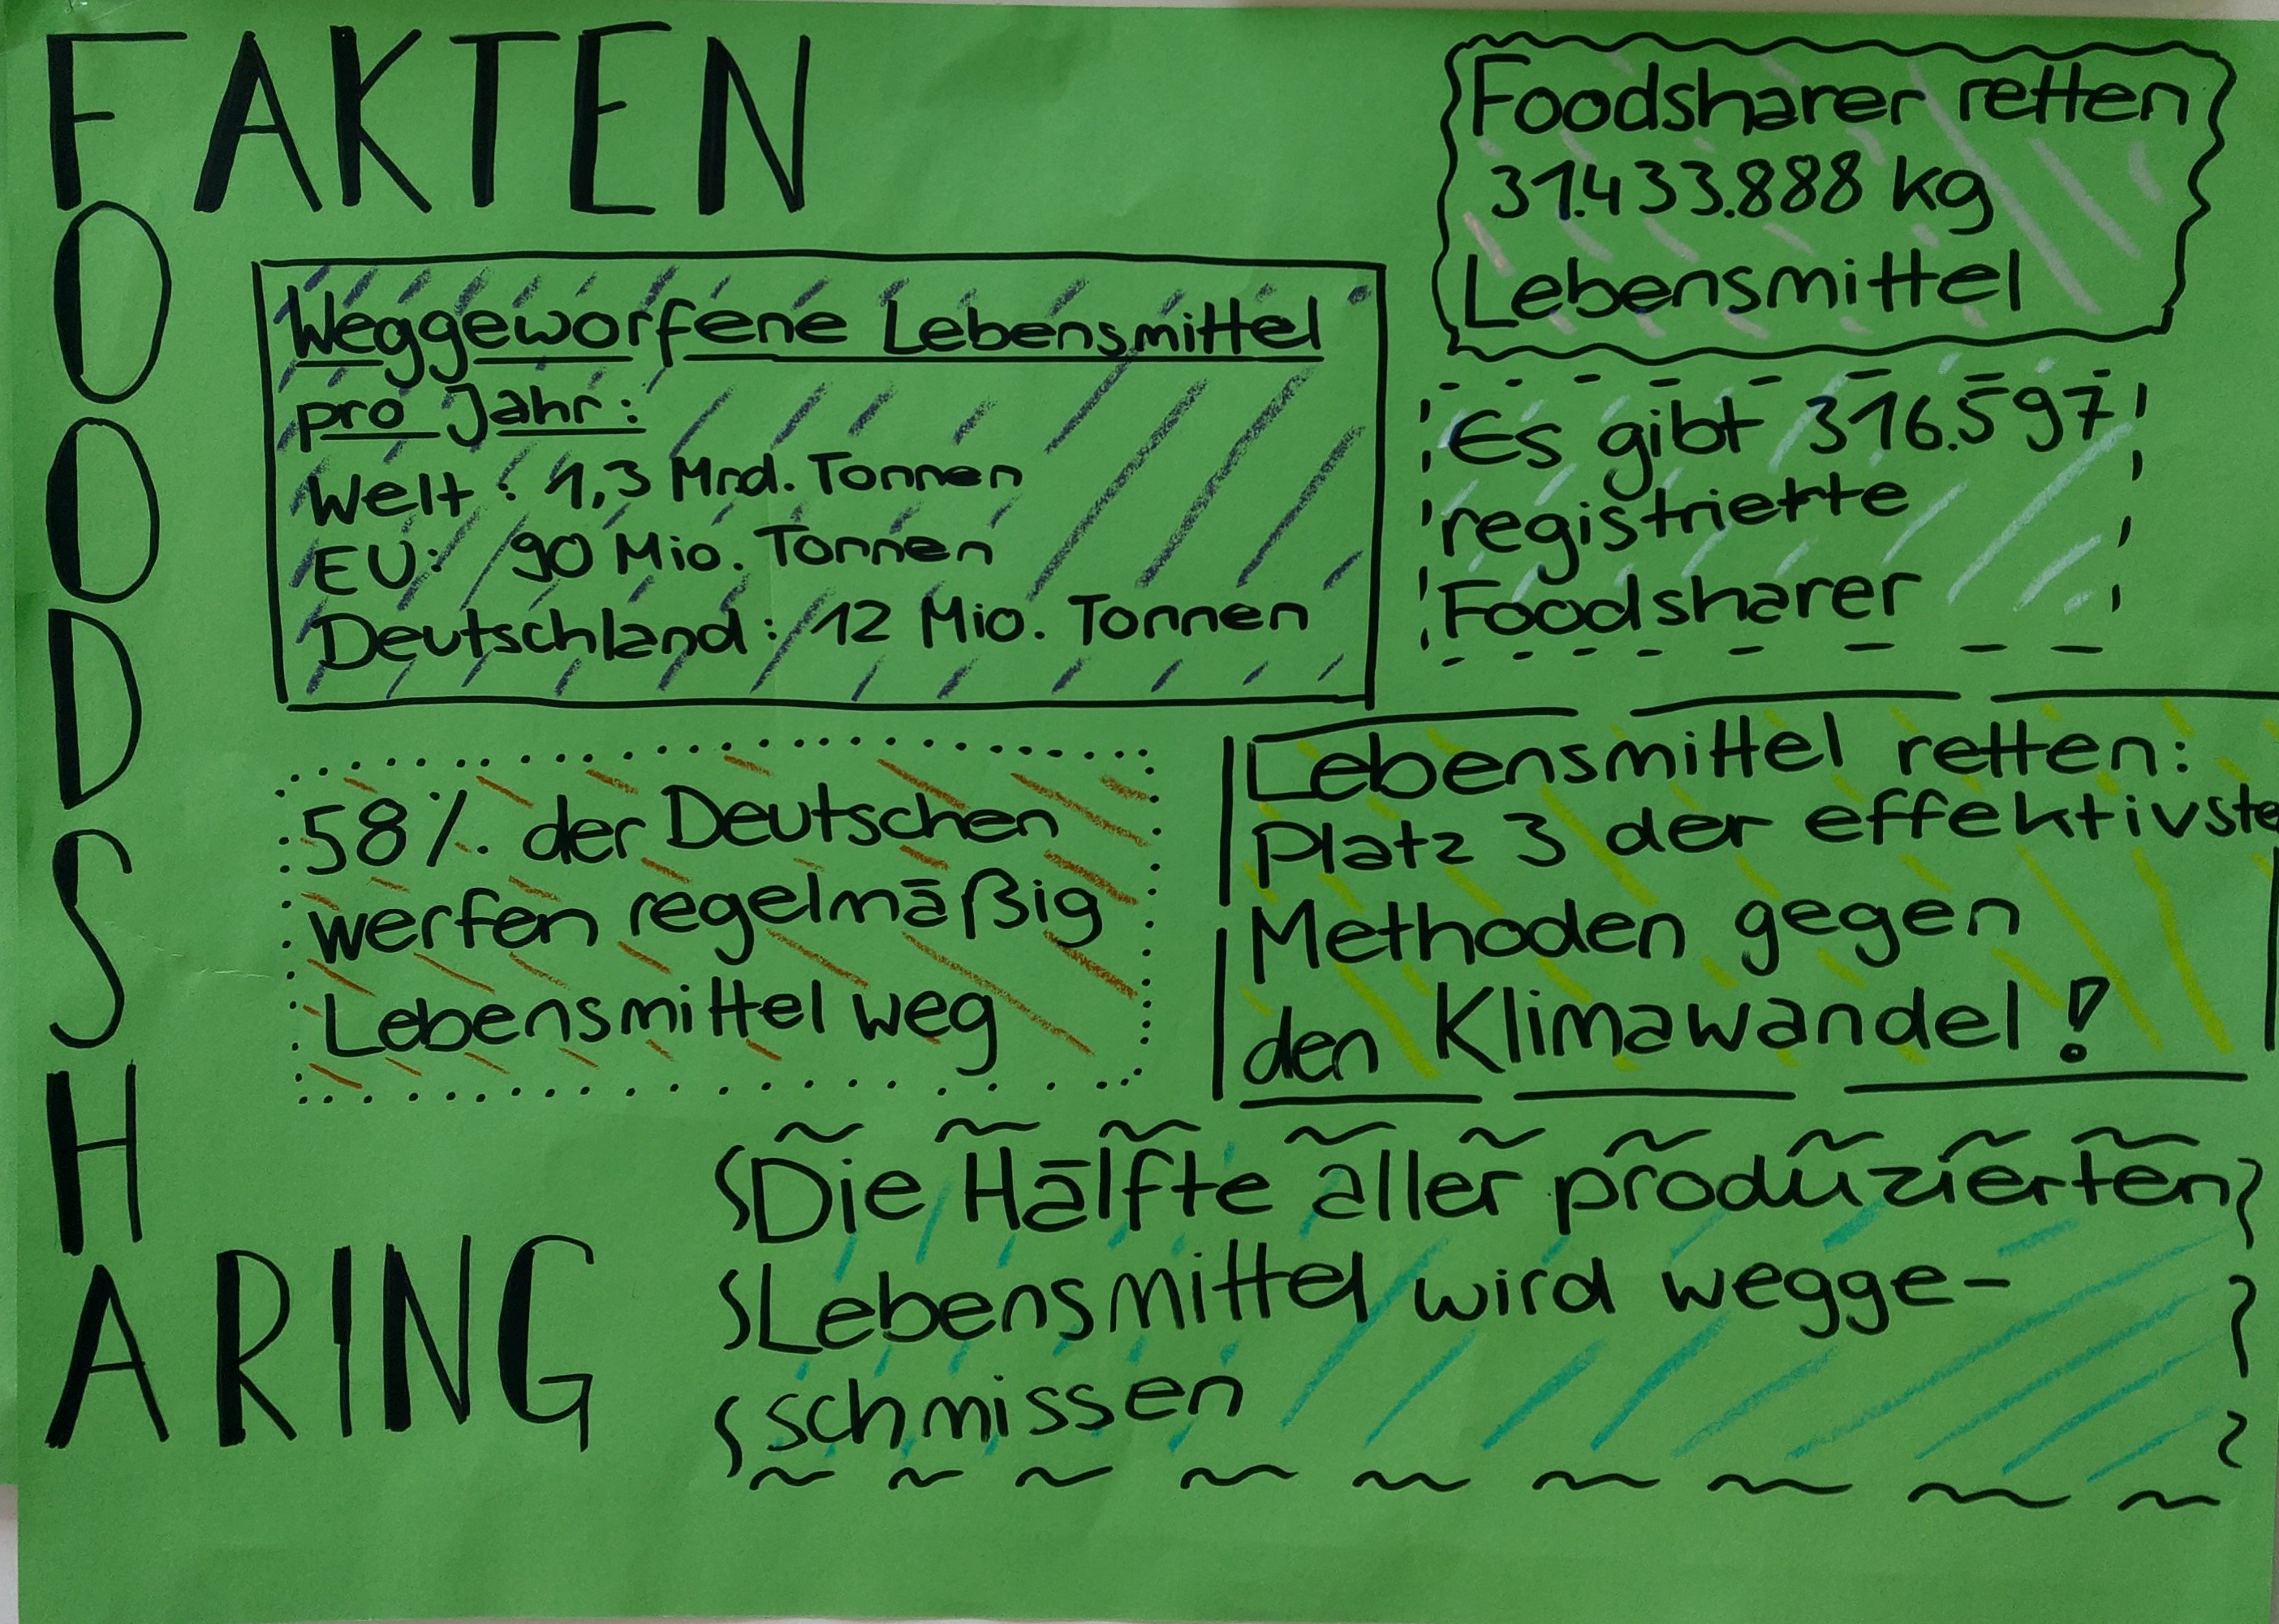 FAKTEN
FOODSHARING
Foodsharer retten
31.433.888 kg
Lebensmittel
Weggeworfene Lebensmittel
pro Jahr:
Welt: 1,3 Mrd. Tonnen
EU: 90 Mio. Tonnen
Deutschland: 12 Mio. Tonnen
Es gibt 316.597
registrierte
Foodsharer
58% der Deutschen
werfen regelmäßig
Lebensmittel weg
Lebensmittel retten:
Platz 3 der effektivste
Methoden gegen
den Klimawandel!
Die Hälfte aller produzierten
Lebensmittel wird wegge-
schmissen